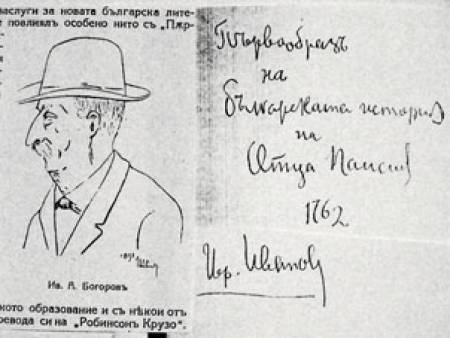 заслуги за новата българска лите-
повлиялъ особено нито съ „Пър-
Ив. А. Богоровъ
ното образование и съ нѣкои отъ
ревода си на „Робинсонъ Крузо“.
Първообразъ
на
Българската история
на
Отца Паисия
1762
Йор. Иванов